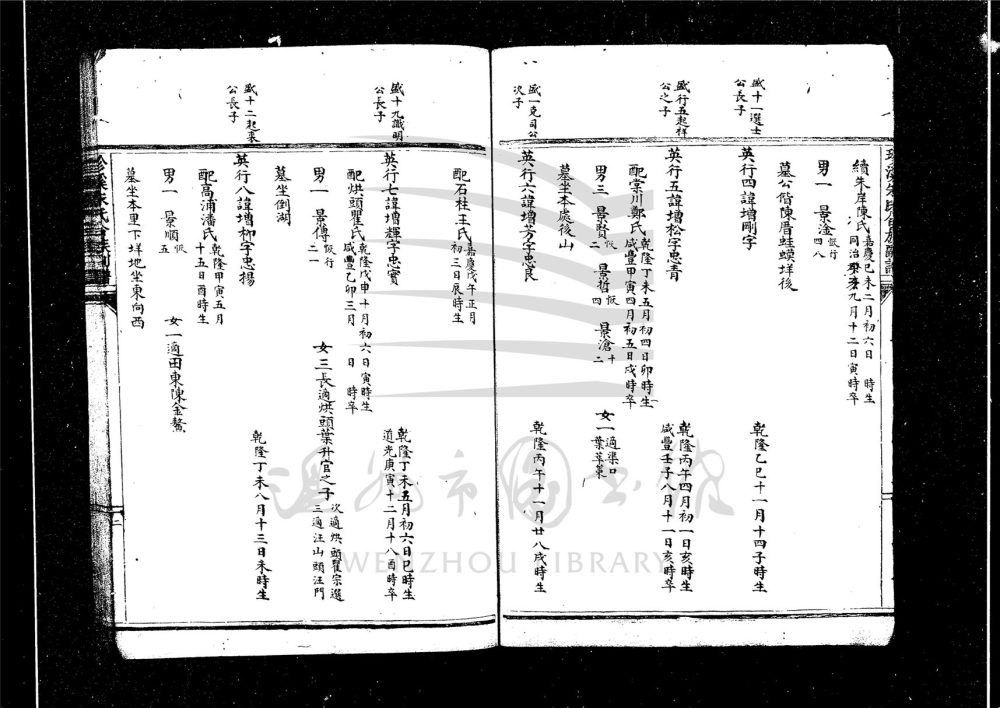 續朱岸陳氏 嘉慶己未二月初六日 時生
同治 九月十二日寅時卒
男一 景淦 恢行四八
墓公偕陳厝蛙蟆垟後
盛十一選士公長子
英行四諱增剛字 乾隆乙巳十一月十四子時生
盛行五起祥公之子
英行五諱增松字忠青 乾隆丙午四月初一日亥時生
咸豐壬子八月十一日亥時卒
配棠川鄭氏 乾隆丁未五月初四日卯時生
咸豐甲寅四月初五日戌時卒
男三 景貯 恢二 景哲 恢四 景滄 十二 女一 適渠口葉萃菓
墓坐本處後山
盛一克司公次子
英行六諱增芳字忠良 乾隆丙午十一月廿八戌時生
配石柱王氏 嘉慶戊午正月初三日辰時生
盛十九識明公長子
英行七諱增輝字忠實 乾隆丁未五月初六日巳時生
道光庚寅十二月十八酉時卒
配烘頭瞿氏 乾隆戊申十月初六日寅時生
咸豐乙卯三月 日 時卒
男一 景傳 恢行二一 女三長適烘頭葉升官之子 次適烘頭瞿宗選
三適汪山頭汪門
墓坐倒湖
盛十二起來公長子
英行八諱增柳字忠揚 乾隆丁未八月十三日未時生
配高浦潘氏 乾隆甲寅五月十五日酉時生
男一 景順 恢五 女一適田東陳金鰲
墓坐本里下垟地坐東向西
溫州市圖書館
WENZHOU LIBRARY